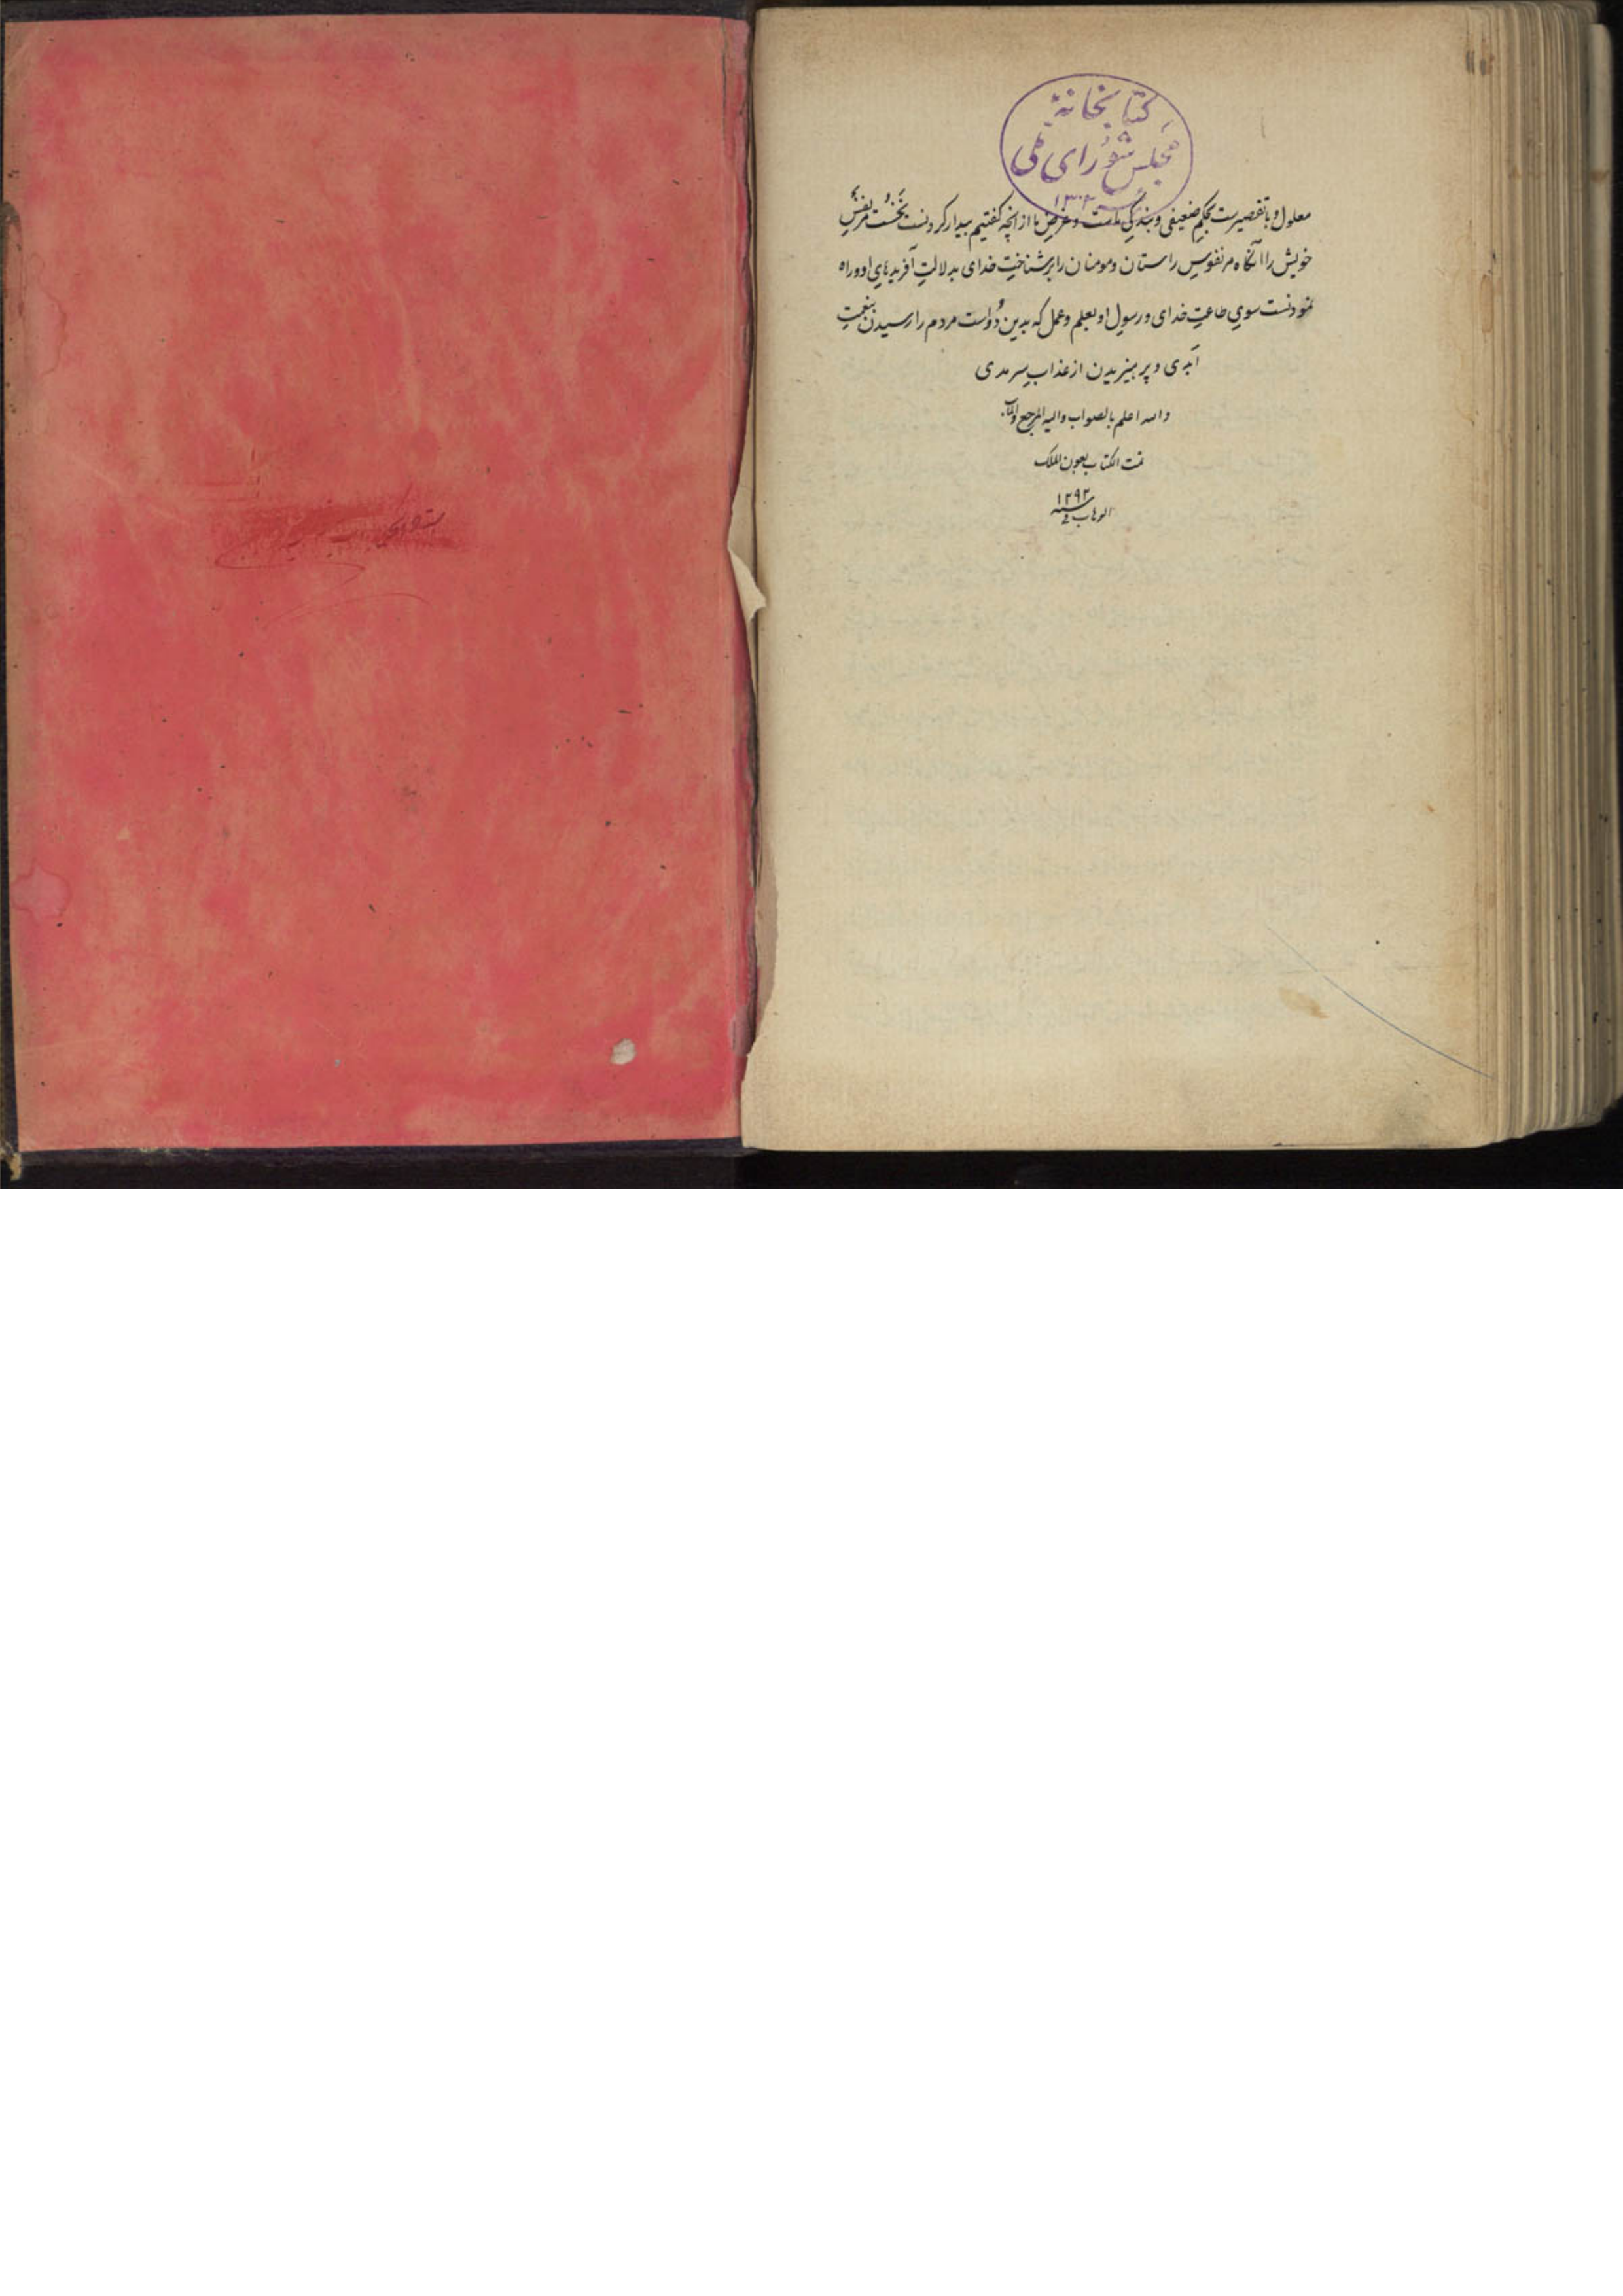 کتابخانهٔ
مجلس شورای ملی
سنه ۱۳۰۲
معلول و با تقصیرست بحکمِ ضعیفی و بندگیِ ماست و غرضِ ما از آنچه گفتیم بیدار کردنست نخُست مر نفسِ
خویش را آنگاه مر نفوسِ راستان و مومنان را بر شناختِ خدای بدلالتِ آفریدهایِ او و راه
نمودنست سویِ طاعتِ خدای و رسولِ او بعلم و عمل که بدین دُو است مردم را رسیدن بنعمتِ
اَبدی و پرهیزیدن از عذابِ سرمدی
والله اعلم بالصواب والیه المرجع والمآب
تمت الکتاب بعون الملک
الوهاب فی سنه ۱۲۹۳